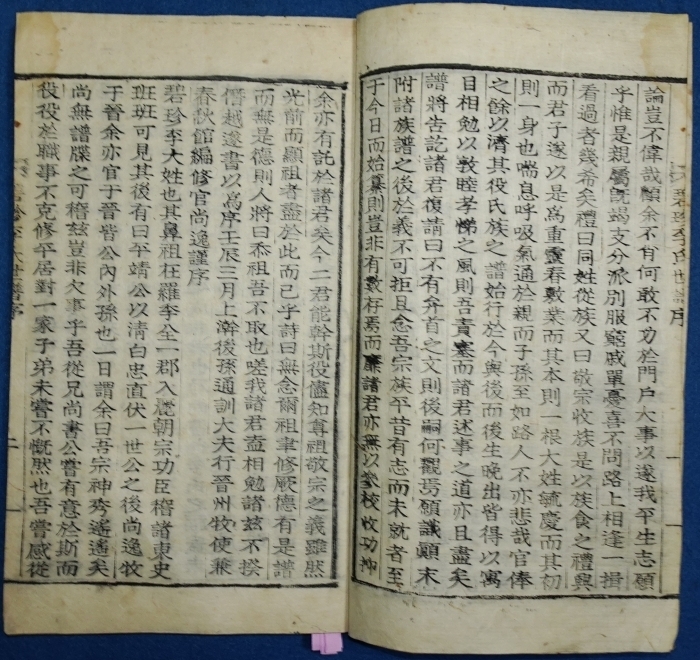 碧珍李氏世譜序
論豈不偉哉顧余不肖何敢不力於門戶大事以遂我平生志願
乎惟是親屬旣竭支分派別服窮戚單憂喜不問路上相逢一揖
看過者幾希矣禮曰同姓從族又曰敬宗收族是以族食之禮興
而君子遂以是爲重靈春數業而其本則一根大姓毓慶而其初
則一身也喘息呼吸氣通於親而子孫至如路人不亦悲哉官俸
之餘以濟其役氏族之譜始行於今與後而後生晚出皆得以寓
目相勉以敦睦孝悌之風則吾責塞而諸君述事之道亦且盡矣
譜將告訖諸君復請曰不有弁首之文則後嗣何觀焉願識顚末
附諸族譜之後於義不可拒且念吾宗族平昔有志而未就者至
于今日而始纂則豈非有數存焉而廉諸君亦無以參校收功抑
余亦有託於諸君矣今二君能幹斯役儘知尊祖敬宗之義雖然
光前而顯祖者盡於此而已乎詩曰無念爾祖聿修厥德有是譜
而無是德則人將曰忝祖吾不取也嗟我諸君盍相勉諸玆不揆
僭越遂書以爲序壬辰三月上澣後孫通訓大夫行晉州牧使兼
春秋館編修官尚逸謹序
碧珍李大姓也其鼻祖在羅李全一郡入麗朝宗功臣稽諸東史
班班可見其後有曰平靖公以淸白忠直伏一世公之後尚逸牧
于晉余亦官于晉皆公內外孫也一日謂余曰吾宗神秀遙遙矣
尚無譜牒之可稽玆豈非欠事乎吾從兄尚書公嘗有意於斯而
役役於職事不克修平居對一家子弟未嘗不慨然也吾嘗感從
二